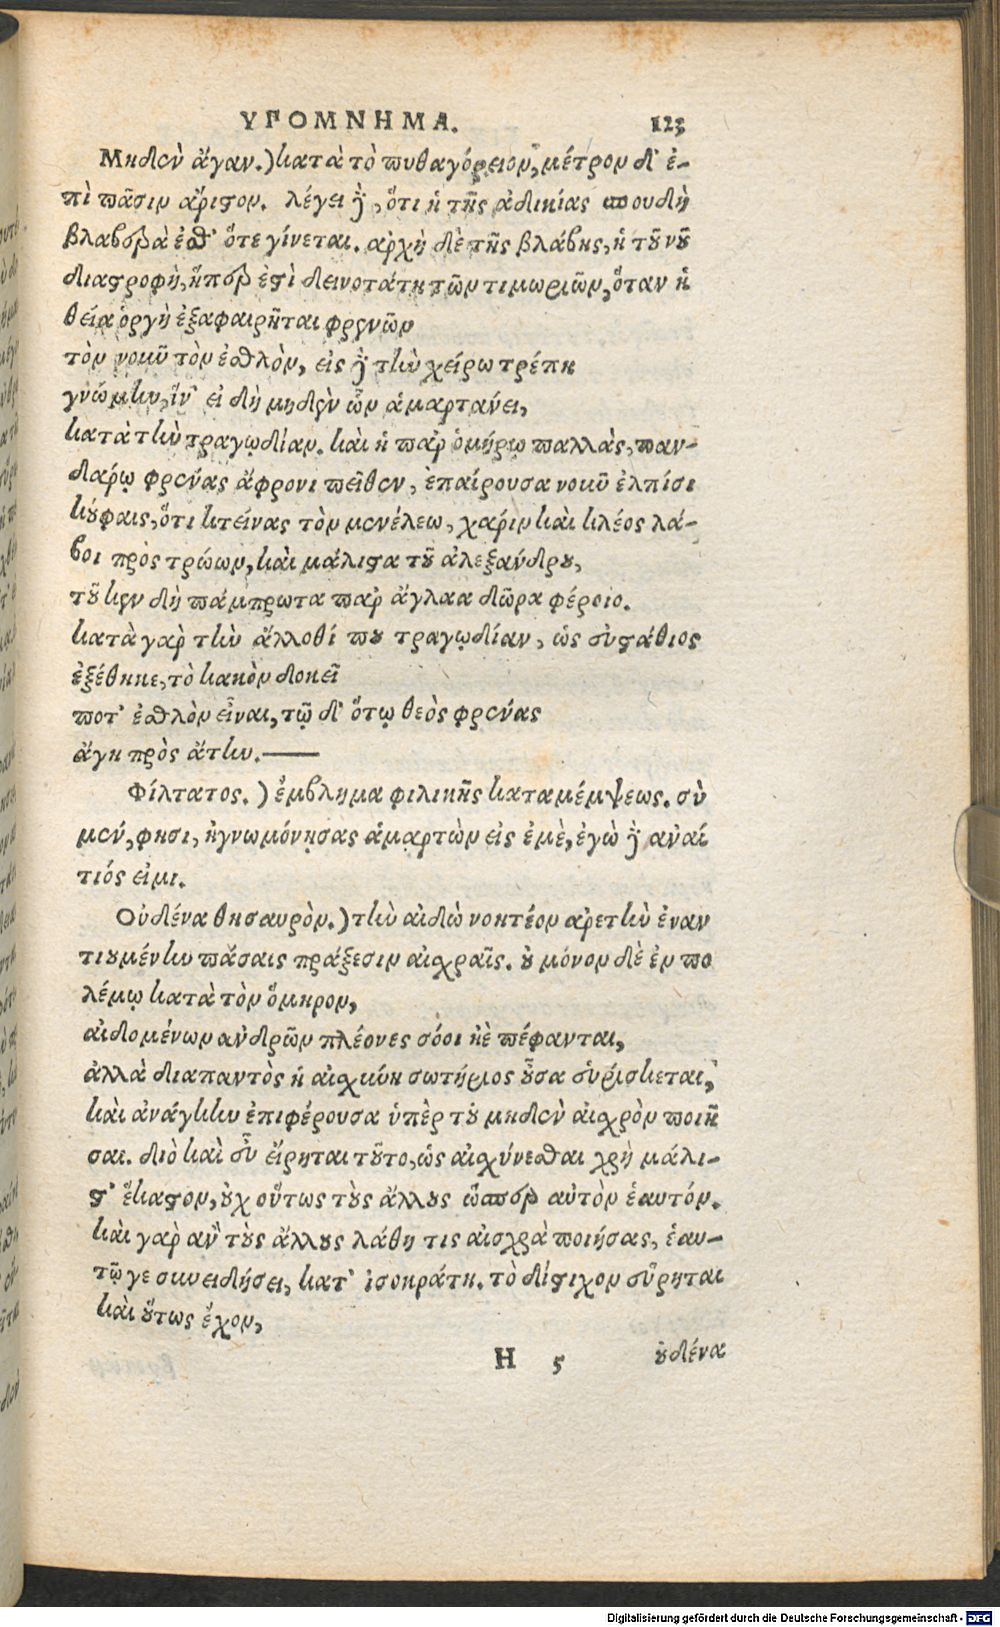 ΥΠΟΜΝΗΜΑ. 123
Μηδὲν ἄγαν.) κατὰ τὸ πυθαγόρειον, μέτρον δ' ἐ-
πὶ πᾶσιν ἄριστον. λέγει δὲ, ὅτι ἡ τῆς ἀδικίας σπουδὴ
βλαβερὰ ἐσθ' ὅτε γίνεται. ἀρχὴ δὲ τῆς βλάβης, ἡ τοῦ νοῦ
διαστροφὴ, ἥπερ ἐστὶ δεινοτάτη τῶν τιμωριῶν, ὅταν ἡ
θεία ὀργὴ ἐξαφαιρῆται φρενῶν
τὸν νοιοῦ τὸν ἐσθλὸν, εἰς δὲ τὴν χείρω τρέπῃ
γνώμην, ἵν' εἰ δὴ μηδὲν ὧν ἁμαρτάνει,
κατὰ τὴν τραγῳδίαν. καὶ ἡ παρ' ὁμήρῳ παλλὰς, παν-
δάρῳ φρένας ἄφρονι πεῖθεν, ἐπαίρουσα νοιοῦ ἐλπίσι
κούφαις, ὅτι κτείνας τὸν μενέλεω, χάριν καὶ κλέος λά-
βοι πρὸς τρώων, καὶ μάλιστα τοῦ ἀλεξάνδρου,
τοῦ κεν δὴ πάμπρωτα παρ' ἄγλαα δῶρα φέροιο.
κατὰ γὰρ τὴν ἄλλοθί που τραγῳδίαν, ὡς εὐστάθιος
ἐξέθηκε, τὸ κακὸν δοκεῖ
ποτ' ἐσθλὸν εἶναι, τῷ δ' ὅτῳ θεὸς φρένας
ἄγῃ πρὸς ἄτην.——
Φίλτατος.) ἔμβλημα φιλικῆς καταμέμψεως. σὺ
μέν, φησι, ἠγνωμόνησας ἁμαρτὼν εἰς ἐμὲ, ἐγὼ δὲ ἀναί
τιός εἰμι.
Οὐδένα θησαυρὸν.) τὴν αἰδὼ νοητέον ἀρετὴν ἐναν
τιουμένην πάσαις πράξεσιν αἰσχραῖς. οὐ μόνον δὲ ἐν πο
λέμῳ κατὰ τὸν ὅμηρον,
αἰδομένων ἀνδρῶν πλέονες σόοι ἠὲ πέφανται,
ἀλλὰ διαπαντὸς ἡ αἰσχύνη σωτήριος οὖσα εὑρίσκεται,
καὶ ἀνάγκην ἐπιφέρουσα ὑπὲρ τοῦ μηδὲν αἰσχρὸν ποιῆ
σαι. διὸ καὶ εὖ εἴρηται τοῦτο, ὡς αἰσχύνεσθαι χρὴ μάλι-
στ' ἕκαστον, οὐχ οὕτως τοὺς ἄλλους ὥσπερ αὐτὸν ἑαυτόν.
καὶ γὰρ ἂν τοὺς ἄλλους λάθῃ τις αἰσχρὰ ποιήσας, ἑαυ-
τῷ γε συνειδήσει, κατ' ἰσοκράτη. τὸ δίστιχον εὕρηται
καὶ οὕτως ἔχον,
H 5 οὐδένα
Digitalisierung gefördert durch die Deutsche Forschungsgemeinschaft - DFG